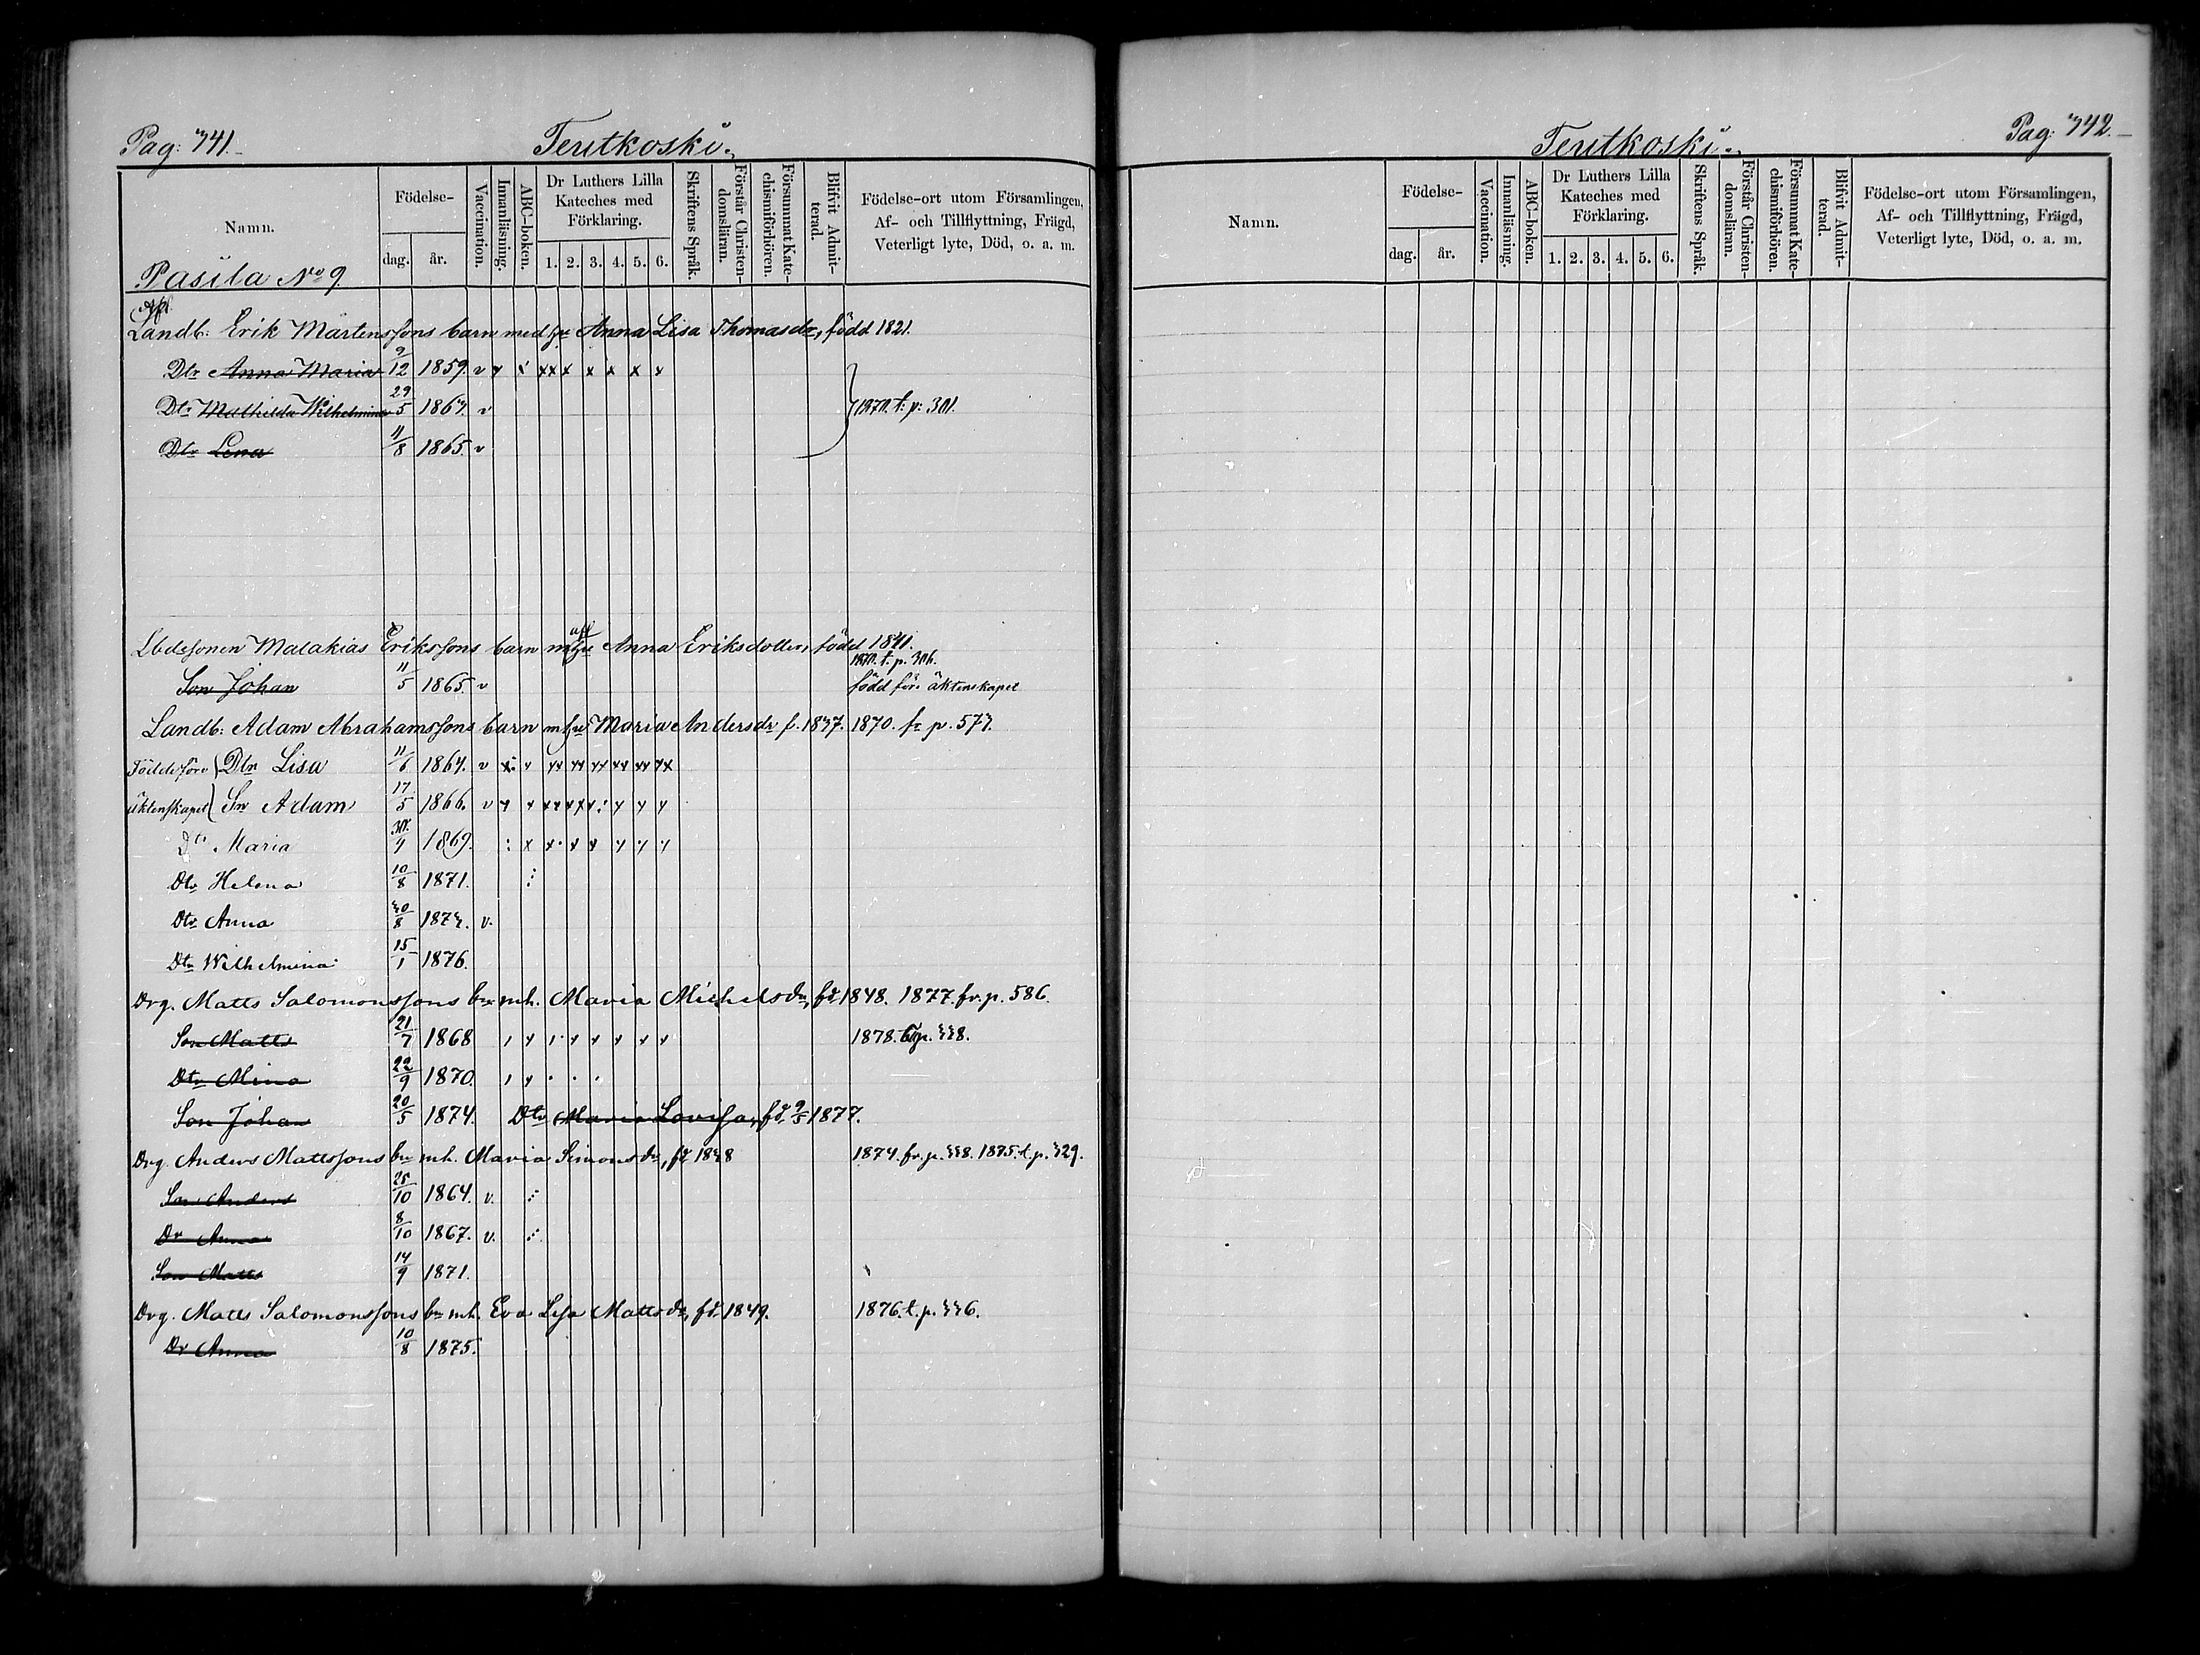 Pag: 741.
Teutkoski.
Namn.
Födelse-
dag. år.
Vaccination.
Innanläsning.
ABC-boken.
Dr Luthers Lilla Kateches med Förklaring.
1. 2. 3. 4. 5. 6.
Skriftens Språk.
Förstår Christendomsläran.
Försummat Katechismiförhören.
Blifvit Admitterad.
Födelse-ort utom Församlingen,
Af- och Tillflyttning, Frägd,
Veterligt lyte, Död, o. a. m.
Pasila No 9.
Afl.
Landb: Erik Mårtenssons barn med hu Anna Lisa Thomasdr, född 1821.
Dtr Anna Maria 9/12 1859. v
Dtr Mathilda Wilhelmina 29/5 1863. v 1870. t: p: 301.
Dtr Lena 11/8 1865. v
Ldbdesonen Malakias Erikssons barn m afl hu Anna Eriksdotter, född 1841.
1870. t. p. 306.
Son Johan 11/5 1865. v född före äktenskapet
Landb: Adam Abrahamssons barn m hu Maria Andersdr f. 1837. 1870. fr p. 573.
Födde före Dtr Lisa 11/6 1864. v
äktenskapet Son Adam 17/5 1866. v
Dtr Maria 30/9 1869.
Dtr Helena 10/8 1871.
Dtr Anna 30/8 1873. v.
Dtr Wilhelmina 15/1 1876.
Drg. Matts Salomonssons bn mh. Maria Michelsdr, fd 1848. 1877. fr. p. 586.
Son Matts 21/7 1868 1878. t. p. 338.
Dtr Mina 22/9 1870.
Son Johan 20/5 1874. Dtr Maria Lovisa, fd. 9/5 1877.
Drg. Anders Mattssons bn mh. Maria Simonsdr, fd 1838 1874. fr. p. 338. 1875. t. p. 329.
Son Anders 25/10 1864. v.
Dr Anna 8/10 1867. v.
Son Matts 14/9 1871.
Drg. Matts Salomonssons bn mh. Eva Lisa Mattsdr, fd 1849. 1876. t. p. 336.
Dr Anna 10/8 1875.
Pag: 742.
Teutkoski.
Namn.
Födelse-
dag. år.
Vaccination.
Innanläsning.
ABC-boken.
Dr Luthers Lilla Kateches med Förklaring.
1. 2. 3. 4. 5. 6.
Skriftens Språk.
Förstår Christendomsläran.
Försummat Katechismiförhören.
Blifvit Admitterad.
Födelse-ort utom Församlingen,
Af- och Tillflyttning, Frägd,
Veterligt lyte, Död, o. a. m.